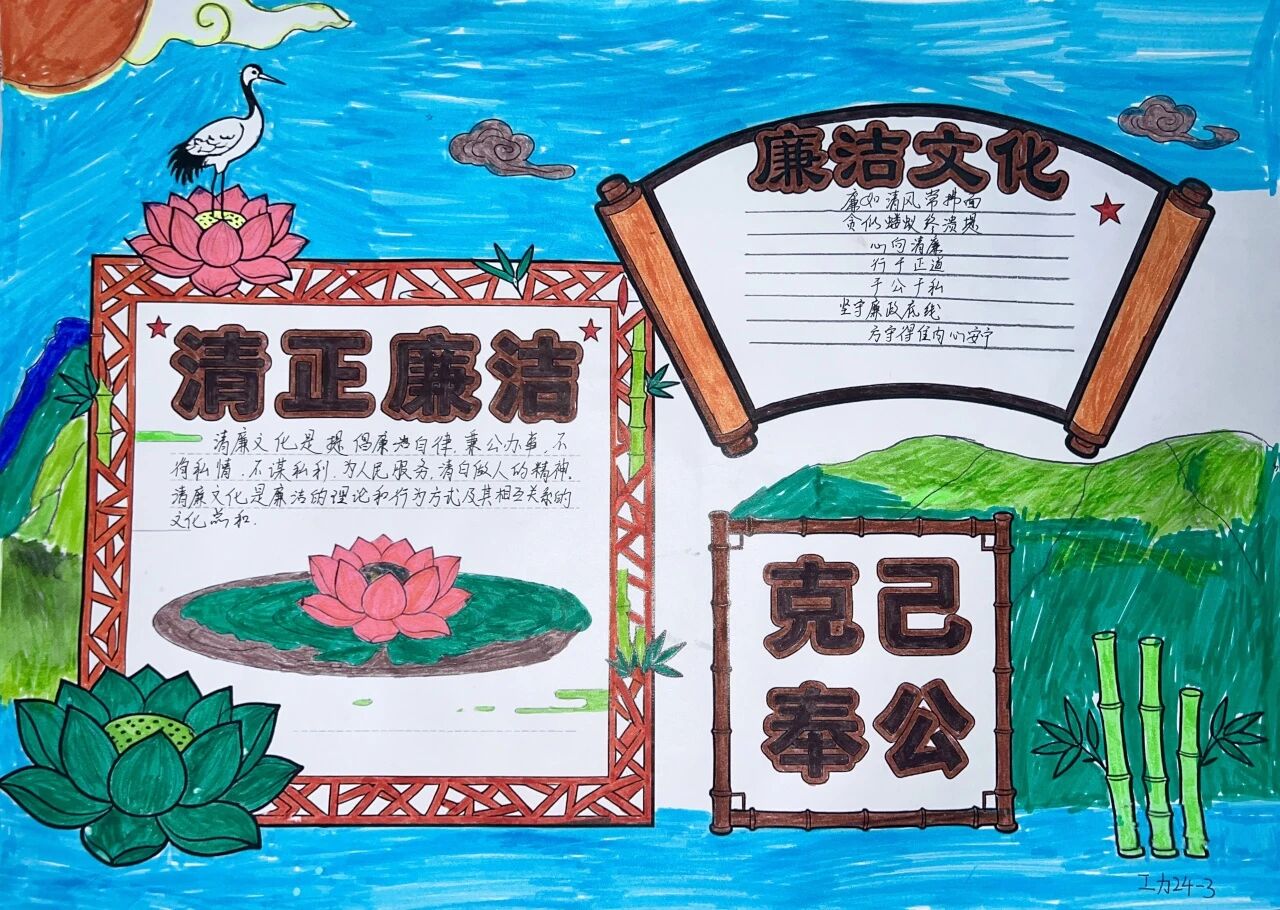 清正廉洁
清廉文化是提倡廉洁自律、秉公办事、不
徇私情、不谋私利、为人民服务、清白做人的精神。
清廉文化是廉洁的理论和行为方式及其相互关系的
文化总和.
廉洁文化
廉如清风常拂面
贪似蝼蚁终溃堤
心向清廉
行于正道
于公于私
坚守廉政底线
方守得住内心安宁
克己
奉公
工力24-3